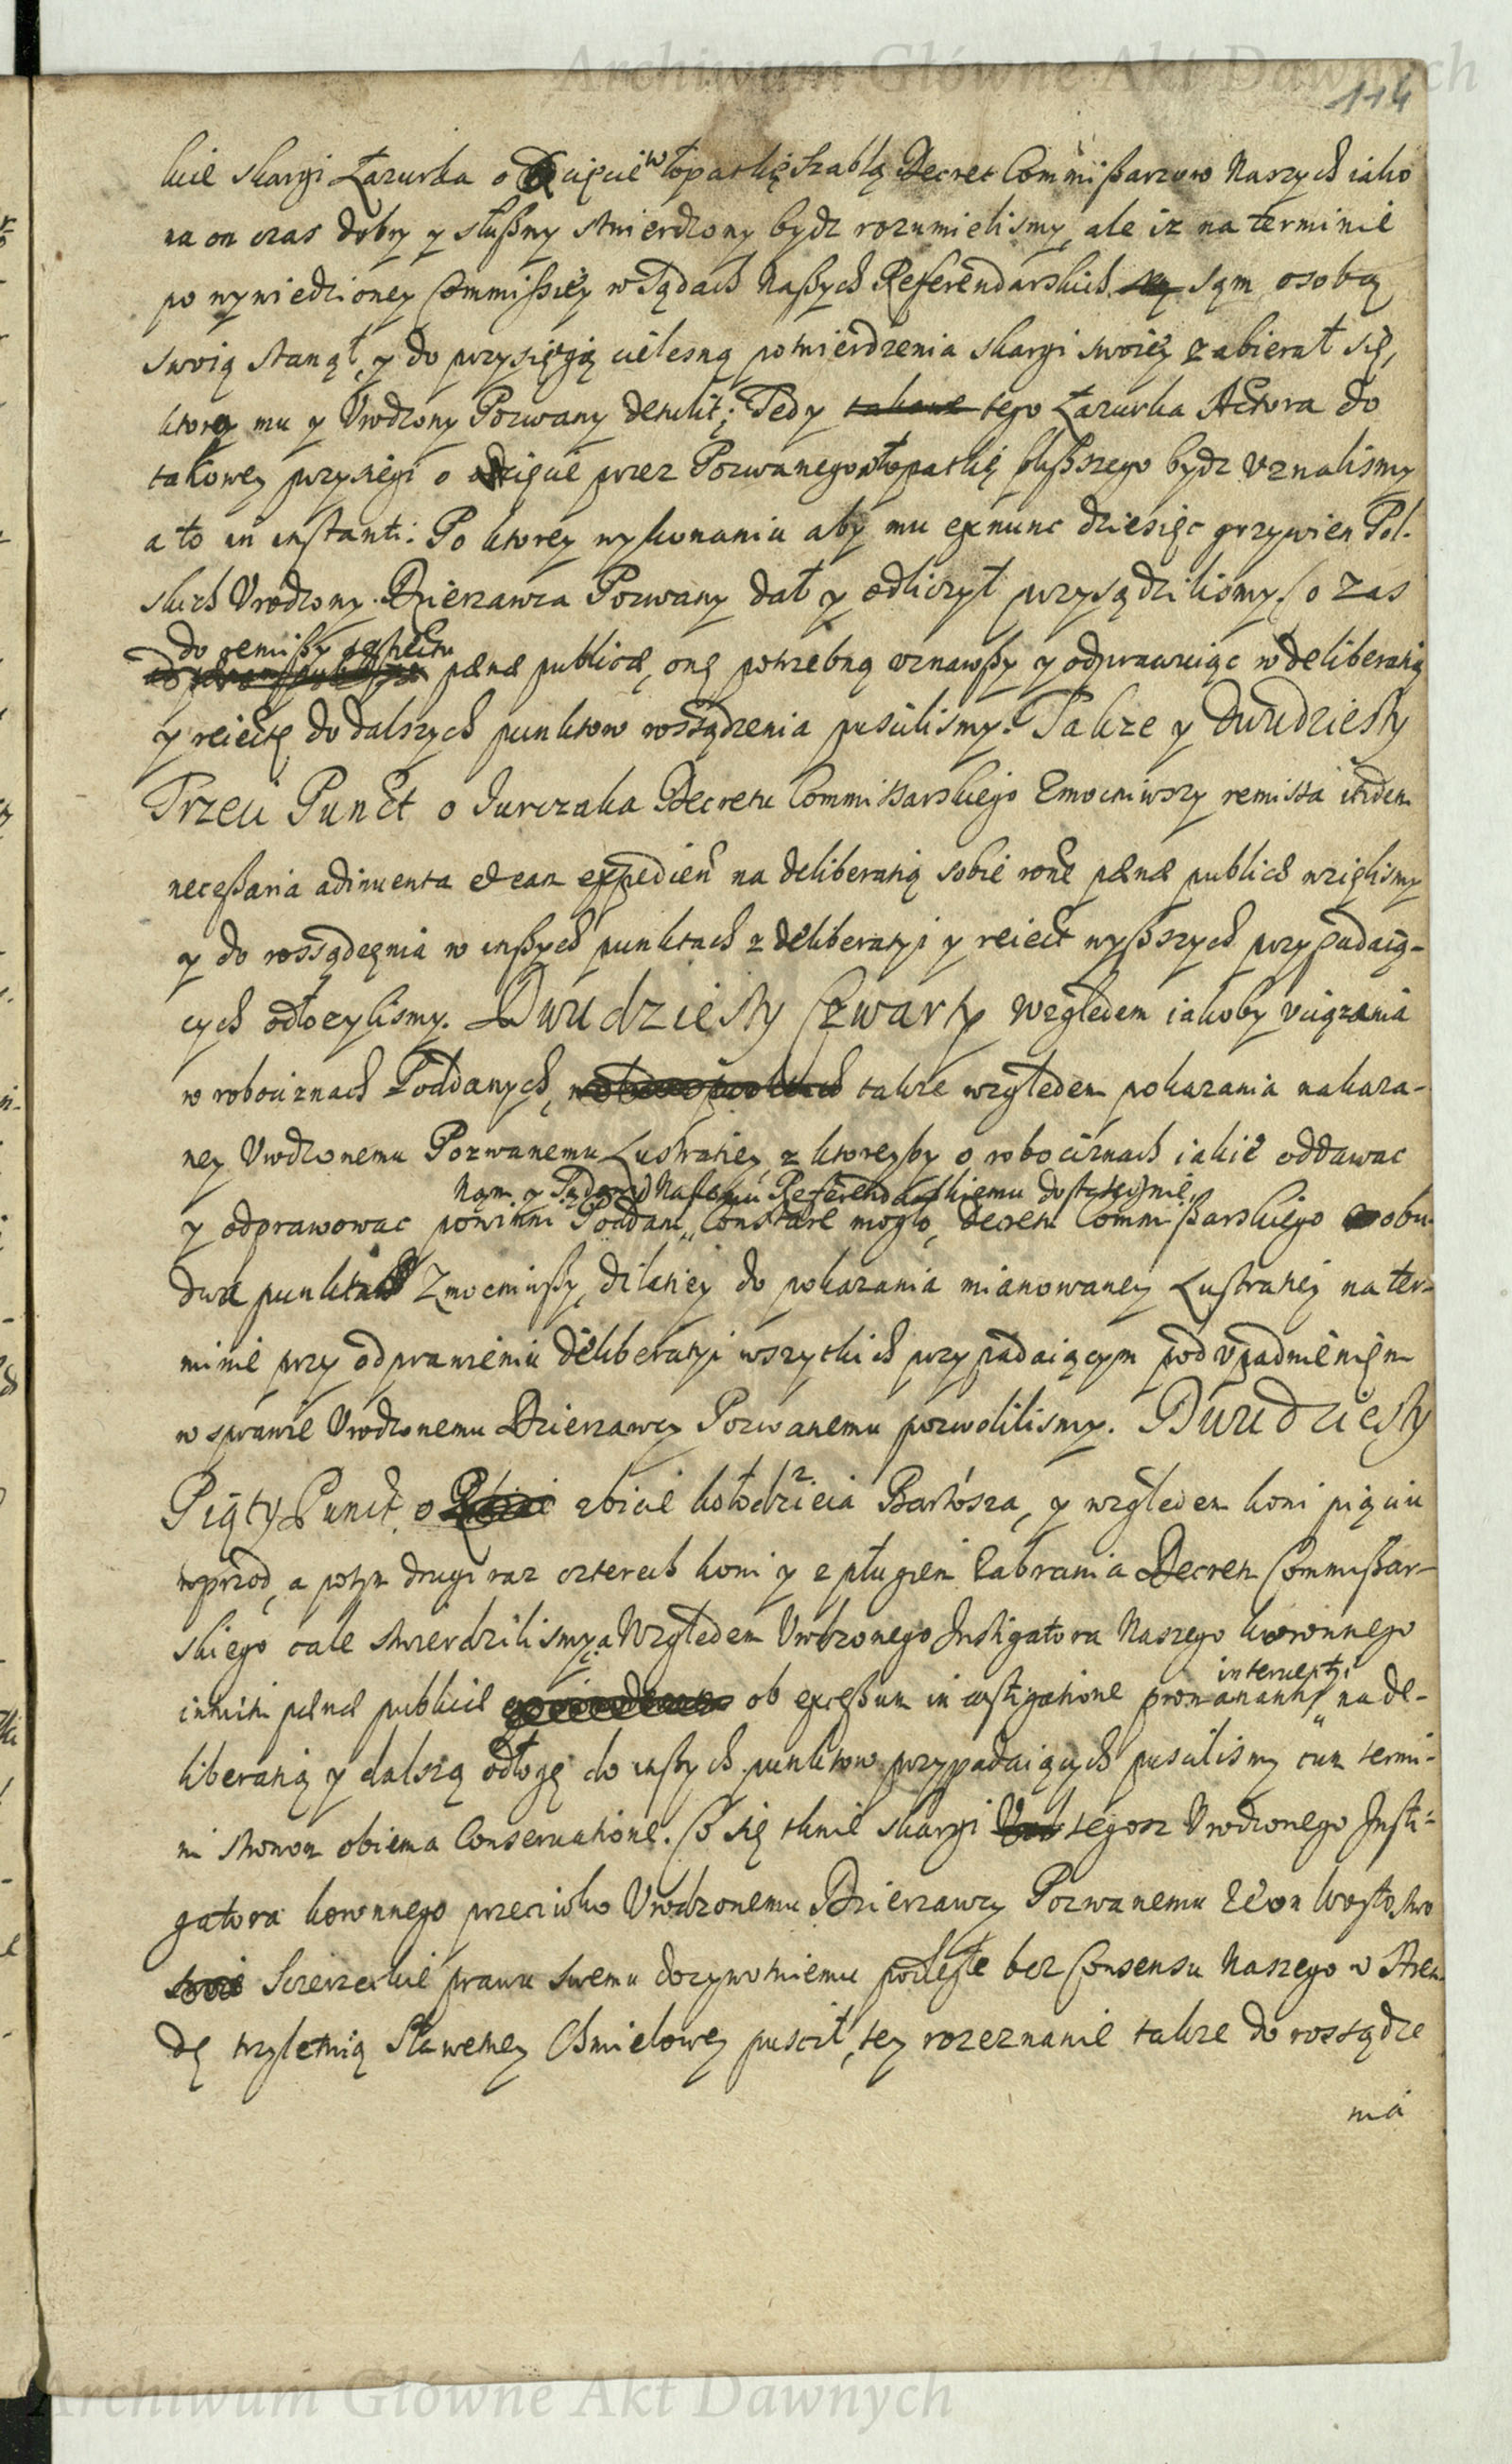 Archiwum Główne Akt Dawnych
114
kie skargi Łazurka o cięcie w łopatkę szablą Decret Commißarzow Naszych iako
na on czas dobry y słußny stwierdzony bydz rozumielismy, ale iz na terminie
po wywiedzioney Commißiey w Sądach Naßych Referendarskich sam osobą
swoią stanął, y do przysięgi cielesną potwierdzenia skargi swoiey zabierał się,
ktorą mu y Urodzony Pozwany detulit; Tedy takowe tego Łazurka Actora do
takowey przysięgi o cięcie przez Pozwanego w łopatkę blißszego bydz uznalismy
a to in instanti: Po ktorey wykonaniu aby mu exnunc dziesięc grzywien Pol-
skich Urodzony Dzierzawca Pozwany dał y odliczył przysądzilismy. Co zas
do remißy respectu
pænæ publicæ, onę potrzebną uznawßy y odprawuiąc w deliberatią
y reiectę do dalszych punktow rossądzenia puscilismy. Takze y Dwudziesty
Trzeci Punct o Jurczaka Decretu Commissarskiego Zmocniwszy remissa itidem
neceßaria adinuenta et ear expedien na deliberatią sobie rõne pænæ publicæ wzięlismy
y do rossądzęnia w inßych punktach z deliberatyi y reiect wyßszych przypadaią-
cych odłozylismy. Dwudziesty Czwarty względem iakoby uciązania
w robociznach Poddanych, takze względem pokazania nakaza-
ney Urodzonemu Pozwanemu Lustratiey, z ktoreyby o robociznach iakie oddawac
Nam y Sądowi Naßemu Referendarskiemu dostatecznie
y odprawowac powinni Poddani „ Constare mogło, Decretu Commißarskiego obu-
dwu punktach Zmocniwßy, dilatiey do pokazania mianowaney Lustratiey na ter-
minie przy odprawieniu deliberatyi wszytkich przypadaiącym pod upadnieniem
w sprawie Urodzonemu Dzierzawcy Pozwanemu pozwolilismy. Dwudziesty
Piąty Punct o zbicie kołodzieia Bartosza, y względem koni pięciu
wprzod, a potym drugi raz czterech koni y z pługiem Zabrania Decretu Commißar-
skiego cale stwierdzilismy. a Względem Urodzonego Instigatora Naszego koronnego
interuentyi
intuitu pænæ publicæ ob exceßum in castigatione promanantis „ na de-
liberatią y dalszą odłogę do inßych punktow przypadaiących puscilismy cum termi-
ni stronom obiema Conseruatione. Co się tknie skargi tegosz Urodzonego Insti-
gatora koronnego przeciwko Urodzonemu Dzierzawcy Pozwanemu Ze on
swoie prawu swemu dozywotniemu podległe bez Consensu Naszego w Aren-
dę trzyletnią Sławetney Chmielowey puscił, tey rozeznanie takze do rossądze
nia
Archiwum Główne Akt Dawnych